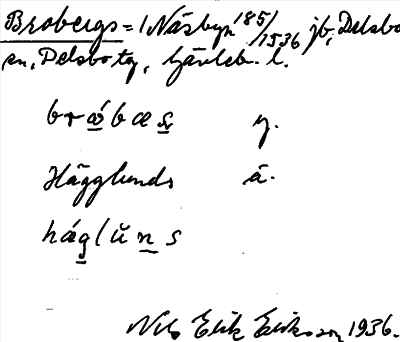 Brobergs = 1 Näsbyn 185/1536 jb, Delsbo
sn, Delsbo tg, Gävleb. l.
brǽ̲bæs̲ y.
Hägglunds ä.
hág̲lŭn̲s
Nils Erik Eriksson 1936.